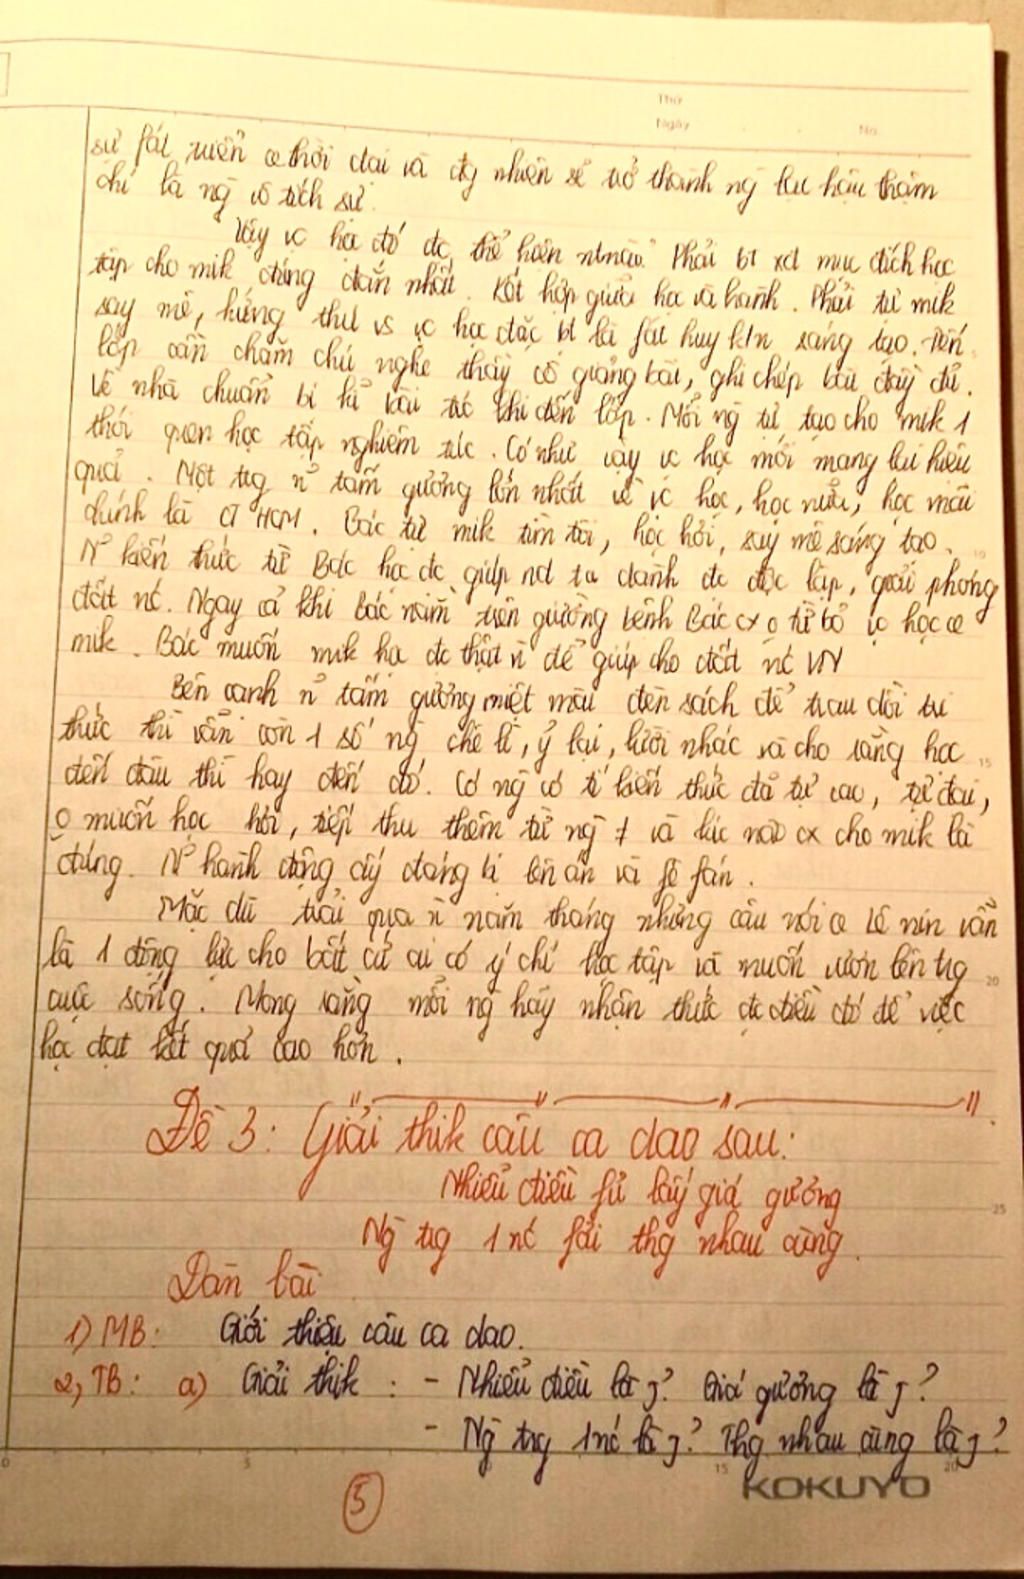 Thứ
Ngày No.
sự fát triển ơ thời đại và đg nhiên sẽ trở thành ng lạc hậu thậm
chí là ng vô tích sự.
Vậy vc học đó đc thể hiện ntnào? Phải bt xđ mục đích học
tập cho mik đúng đắn nhất. Kết hợp giữa học và hành. Phải tự mik
say mê, hứng thú vs vc học đặc bt là fát huy k/n sáng tạo. Đến
lớp cần chăm chú nghe thầy cô giảng bài, ghi chép bài đầy đủ.
Về nhà chuẩn bị kĩ bài trc khi đến lớp. Mỗi ng tự tạo cho mik 1
thói quen học tập nghiêm túc. Có như vậy vc học mới mang lại hiệu
quả. Một trg n~ tấm gương lớn nhất về vc học, học nữa, học mãi
chính là CT HCM. Bác tự mik tìm tòi, học hỏi, say mê sáng tạo.
N~ kiến thức từ Bác học đc giúp nd ta dành đc độc lập, giải phóng
đất nc. Ngay cả khi Bác nằm trên giường bệnh Bác cx o từ bỏ vc học ơ
mik. Bác muốn mik học đc thật n` để giúp cho đất nc VN
Bên cạnh n~ tấm gương miệt mài đèn sách để trau dồi tri
thức thì vẫn còn 1 số ng chê lì, ỷ lại, lười nhác và cho rằng học
đến đâu thì hay đến đó. Có ng có tí kiến thức đã tự cao, tự đại,
o muốn học hỏi, tiếp thu thêm từ ng ≠ và lúc nào cx cho mik là
đúng. N~ hành động ấy đáng bị lên án và fê fán.
Mặc dù trải qua n` năm tháng nhưng câu nói ơ Lê nin vẫn
là 1 động lực cho bất cứ ai có ý chí học tập và muốn vươn lên trg
cuộc sống. Mong rằng mỗi ng hãy nhận thức đc điều đó để việc
học đạt kết quả cao hơn.
Đề 3: Giải thik câu ca dao sau:
Nhiễu điều fủ lấy giá gương
Ng` trg 1 nc fải thg nhau cùng.
Dàn bài
1) MB: Giới thiệu câu ca dao.
2, TB: a) Giải thik: - Nhiễu điều là j? Giá gương là j?
- Ng` trg 1 nc là j? Thg nhau cùng là j?
KOKUYO
5